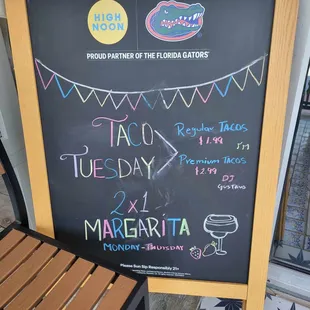 HIGH
NOON
PROUD PARTNER OF THE FLORIDA GATORS
TACO
TUESDAY
Regular TACOS
$1.99
Premium TACOS
$2.99
DJ
GUSTAVO
2x1
MARGARITA
MONDAY - THURSDAY
Please Sun Sip Responsibly 21+